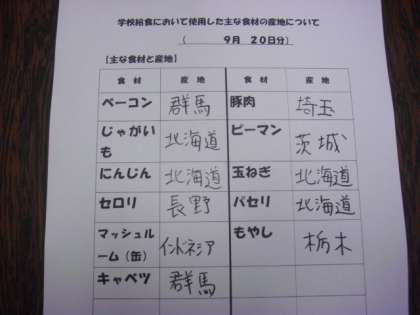 学校給食において使用した主な食材の産地について
(　　　9月　20日分)
【主な食材と産地】
食 材　産 地　食 材　産 地
ベーコン　群馬　豚肉　埼玉
じゃがい
も　北海道　ピーマン　茨城
にんじん　北海道　玉ねぎ　北海道
セロリ　長野　パセリ　北海道
マッシュル
ーム(缶)　インドネシア　もやし　栃木
キャベツ　群馬